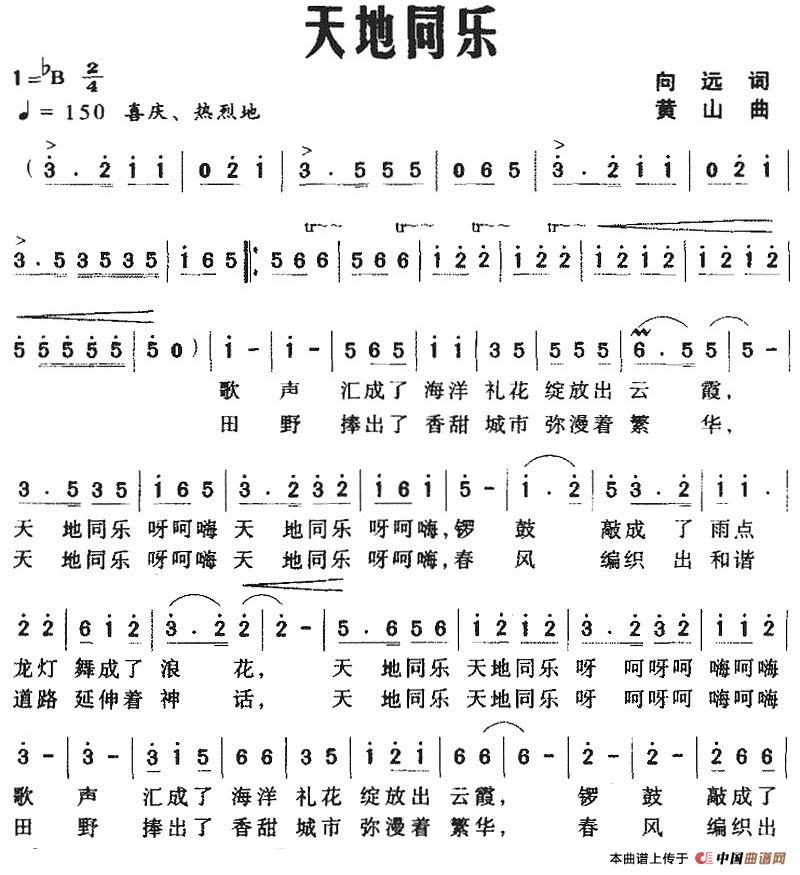 天地同乐
1=♭B 2/4
向远词
♩=150 喜庆、热烈地
黄山曲
(3.2 1 1 | 0 2 1 | 3.5 5 5 | 0 6 5 | 3.2 1 1 | 0 2 1
3.5 3 5 3 5 | 1 6 5 |: 5 6 6 | 5 6 6 | 1 2 2 | 1 2 2 | 1 2 1 2 | 1 2 1 2
5 5 5 5 5 | 5 0) | 1 - | 1 - | 5 6 5 | 1 1 | 3 5 | 5 5 5 | 6.5 5 | 5 -
歌声汇成了海洋礼花绽放出云霞,
田野捧出了香甜城市弥漫着繁华,
3.5 3 5 | 1 6 5 | 3.2 3 2 | 1 6 1 | 5 - | 1.2 | 5 3.2 | 1 1.
天地同乐呀呵嗨天地同乐呀呵嗨,锣鼓敲成了雨点
天地同乐呀呵嗨天地同乐呀呵嗨,春风编织出和谐
2 2 | 6 1 2 | 3.2 2 | 2 - | 5.6 5 5 | 1 2 1 2 | 3.2 3 2 | 1 2 2
龙灯舞成了浪花,天地同乐天地同乐呀呵呀呵嗨呵嗨
道路延伸着神话,天地同乐天地同乐呀呵呀呵嗨呵嗨
3 - | 3 - | 3 1 5 | 6 6 | 3 5 | 1 2 1 | 6 6 | 6 - | 2 - | 2 - | 2 6 6
歌声汇成了海洋礼花绽放出云霞,锣鼓敲成了
田野捧出了香甜城市弥漫着繁华,春风编织出
本曲谱上传于 中国曲谱网